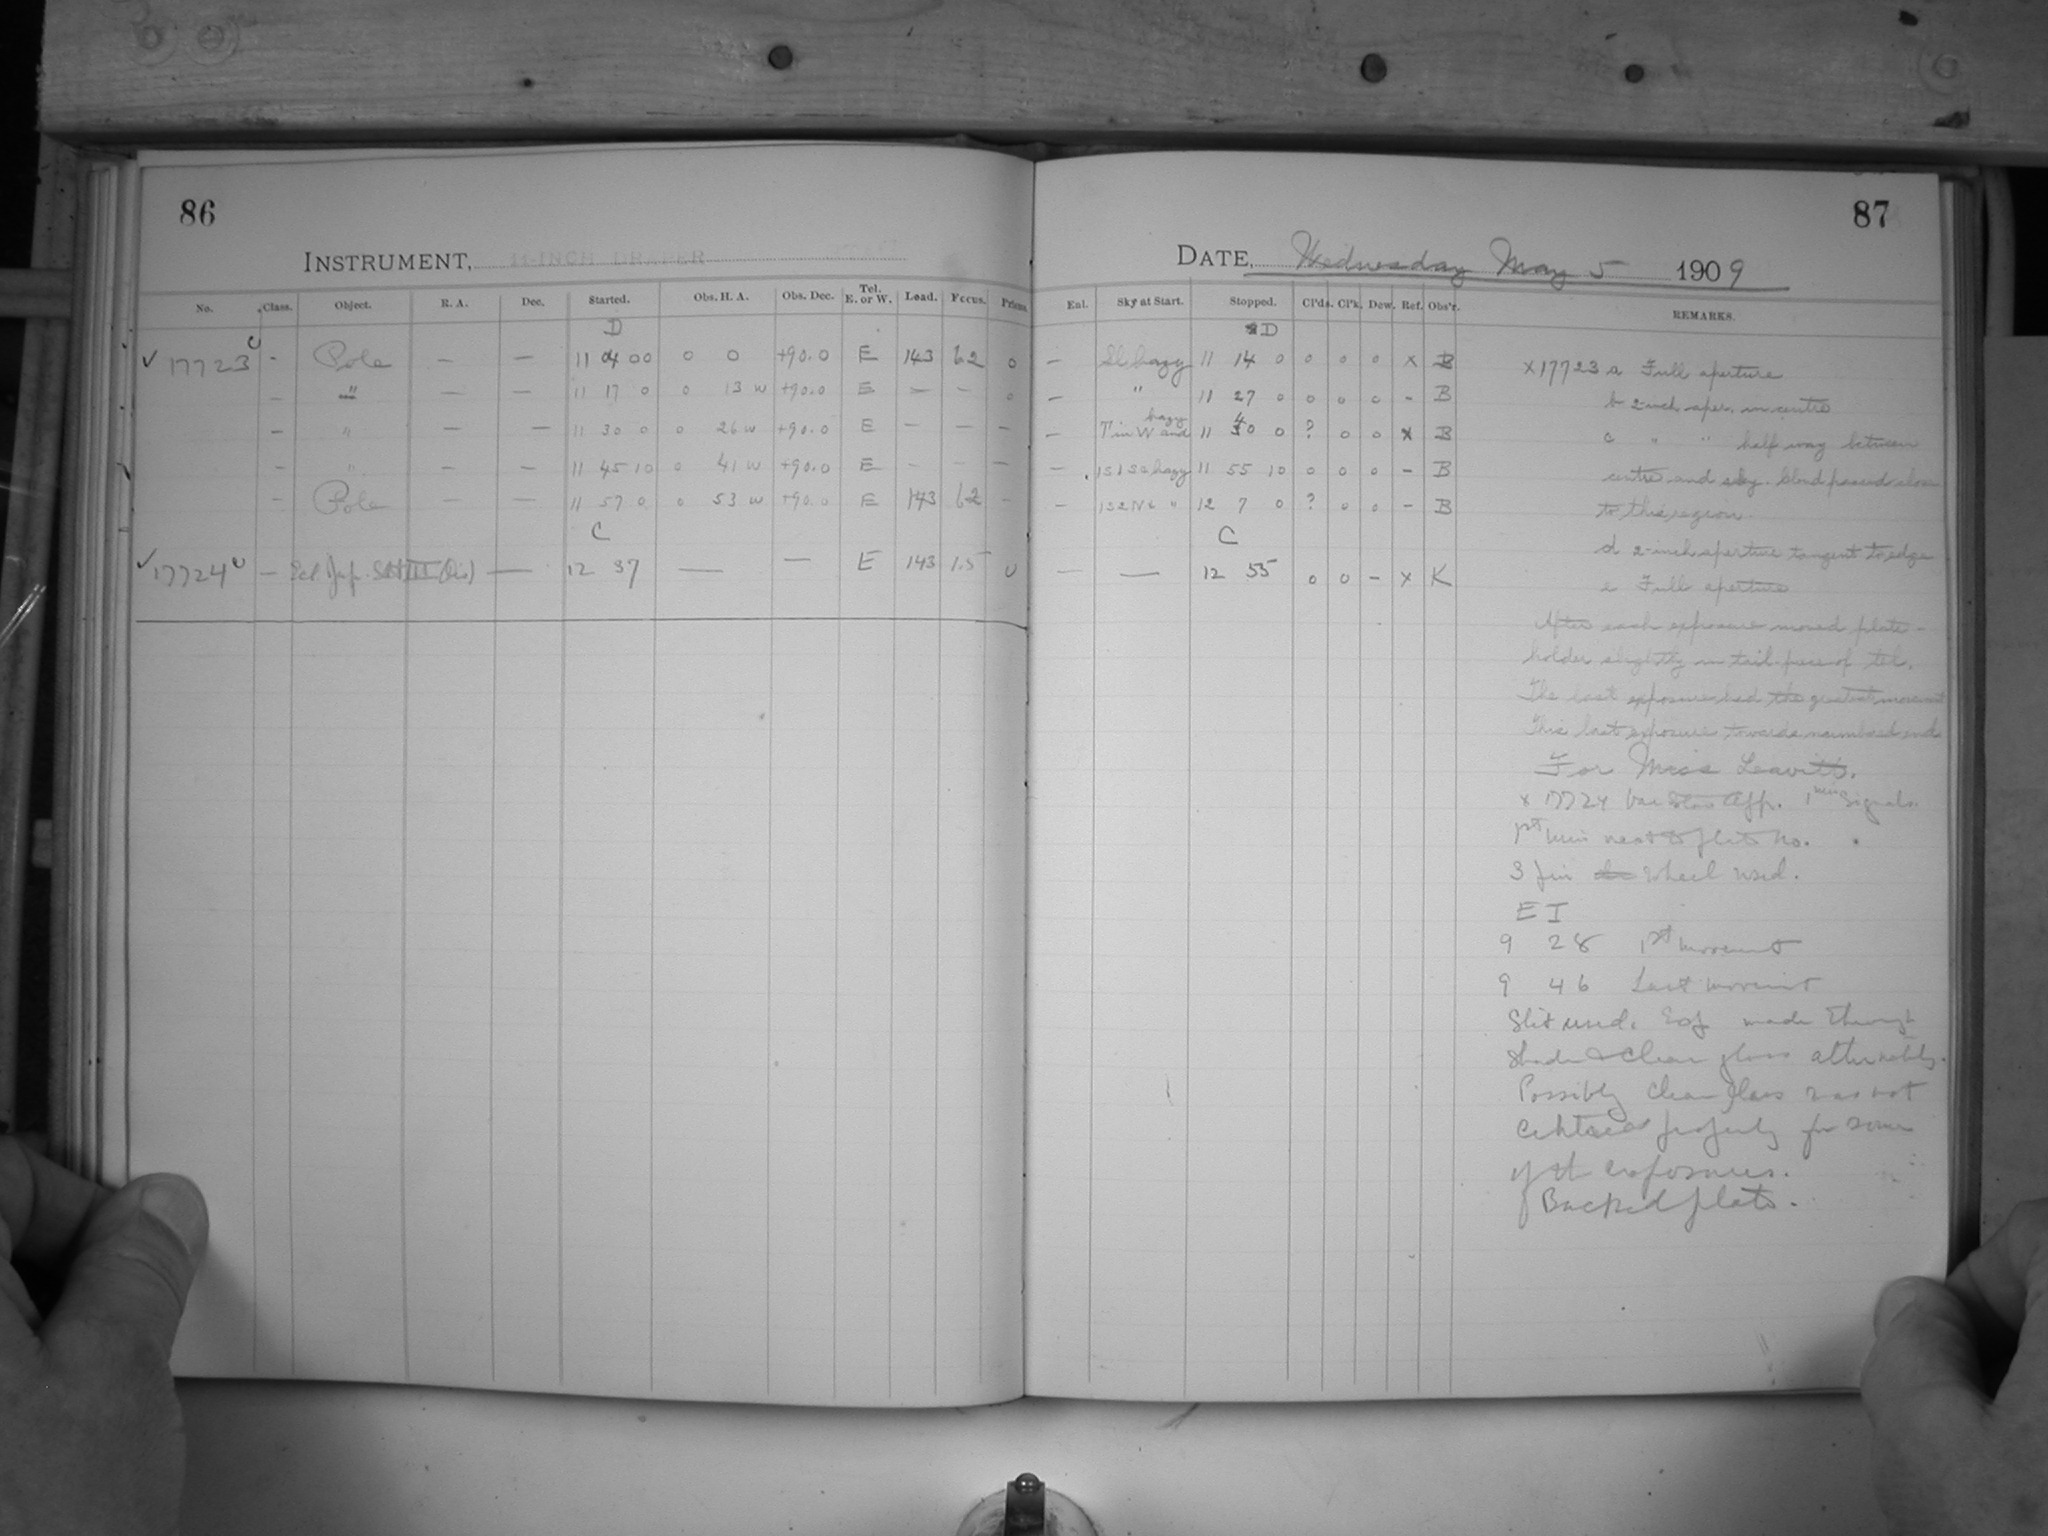 86
INSTRUMENT, 11-INCH DRAPER
No. Class. Object. R. A. Dec. Started. Obs. H. A. Obs. Dec. Tel. E. or W. Load. Focus. Prisms.
D
✓ 17723 c - Pole — — 11 4 00 0 0 +90.0 E 143 62 0
- " — — 11 17 0 0 13 w +90.0 E — — 0
- " — — 11 30 0 0 26 w +90.0 E - - -
- " — — 11 45 10 0 41 w +90.0 E - - -
- Pole — — 11 57 0 0 53 w +90.0 E 143 62 -
C
✓ 17724 c — Ecl. Jup. Sat III (Dis) — 12 37 — — E 143 1.5 0
87
DATE, Wednesday May 5 1909
Enl. Sky at Start. Stopped. Cl'ds. Cl'k. Dew. Ref. Obs'r. REMARKS.
D
— Sl hazy 11 14 0 0 0 0 x B
— " 11 27 0 0 0 0 - B
— hazy 11 40 0 ? 0 0 x B
— hazy 11 55 10 0 0 0 - B
— " 12 7 0 ? 0 0 - B
C
— — 12 55 0 0 - x K
x 17723 a Full aperture
b 2-inch aper. in centre
c " " half way between
centre and edge. Cloud passed close
to this region
d 2-inch aperture tangent to edge
e Full aperture
After each exposure moved plate-
holder slightly in tail-piece of tel.
The last exposure had the greatest movement
This last exposure towards numbered end
For Miss Leavitt.
x 17724 Var Star App. 1 min Signals.
1st min next to plate no.
3 pin wheel used.
E I
9 28 1st movement
9 46 Last movement
Slit used. Exp made through
shade & clear glass alternately.
Possibly clear glass was not
centered properly for some
of the exposures.
Backed plate.